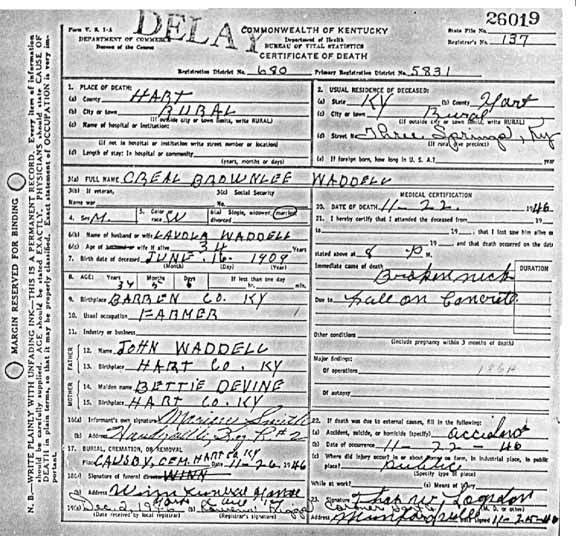 26019
DELAY
Form V. S. 1-A
DEPARTMENT OF COMMERCE
Bureau of the Census
COMMONWEALTH OF KENTUCKY
Department of Health
BUREAU OF VITAL STATISTICS
CERTIFICATE OF DEATH
State File No.
Registrar's No. 137
Registration District No. 680 Primary Registration District No. 5831
MARGIN RESERVED FOR BINDING
N. B.—WRITE PLAINLY WITH UNFADING INK—THIS IS A PERMANENT RECORD. Every item of information
should be carefully supplied. AGE should be stated EXACTLY. PHYSICIANS should state CAUSE OF
DEATH in plain terms, so that it may be properly classified. Exact statement of OCCUPATION is very im-
portant.
1. PLACE OF DEATH:
(a) County HART
(b) City or town RURAL
(If outside city or town limits, write RURAL)
(c) Name of hospital or institution:
(If not in hospital or institution write street number or location)
(d) Length of stay: In hospital or community
(years, months or days)
2. USUAL RESIDENCE OF DECEASED:
(a) State KY (b) County Hart
(c) City or town Rural
(If outside city or town limits, write RURAL)
(d) Street Three Springs, Ky
(If rural give precinct)
(e) If foreign born, how long in U. S. A.? year
3(a) FULL NAME CREAL BROWNLEE WADDELL
3(b) If veteran,
Name war
3(c) Social Security
No.
4. Sex M. 5. Color or race W 6(a) Single, widowed, married, divorced
6(b) Name of husband or wife LAVOLA WADDELL
6(c) Age of husband or wife if alive 34
7. Birth date of deceased JUNE 16 1909
(Month) (Day) (Year)
8. AGE: Years Months Days If less than one day
hr. min.
9. Birthplace BARREN CO. KY
10. Usual occupation FARMER
11. Industry or business
FATHER
12. Name JOHN WADDELL
13. Birthplace HART CO. KY
MOTHER
14. Maiden name BETTIE DEVINE
15. Birthplace HART CO. KY
16(a) Informant's own signature Smith
(b) Address
17. BURIAL, CREMATION, OR REMOVAL
Place CEM. HART CO KY Date 11-26, 1946
18(a) Signature of funeral director WINN
(b) Address Winn Funeral Home
19(a) Dec. 2, 1946 (b)
(Date received by local registrar) (Registrar's signature)
MEDICAL CERTIFICATION
20. DATE OF DEATH 11-22 1946
21. I hereby certify that I attended the deceased from
19, to 19, that I last saw him alive on
19, and that death occurred on the date
stated above at 8 P. M.
Immediate cause of death DURATION
Broken neck
Due to fall on Concrete
Other conditions
(Include pregnancy within 3 months of death)
Major findings:
Of operations
Of autopsy
22. If death was due to external causes, fill in the following:
(a) Accident, suicide, or homicide (specify) accident
(b) Date of occurrence 11-22 46
(c) Where did injury occur? in or about home, on farm, in industrial place, in public
place? public
(Specify type of place)
While at work? (e) Means of
23. Signature Logsdon
(M. D. or other)
Address Munfordville Date signed